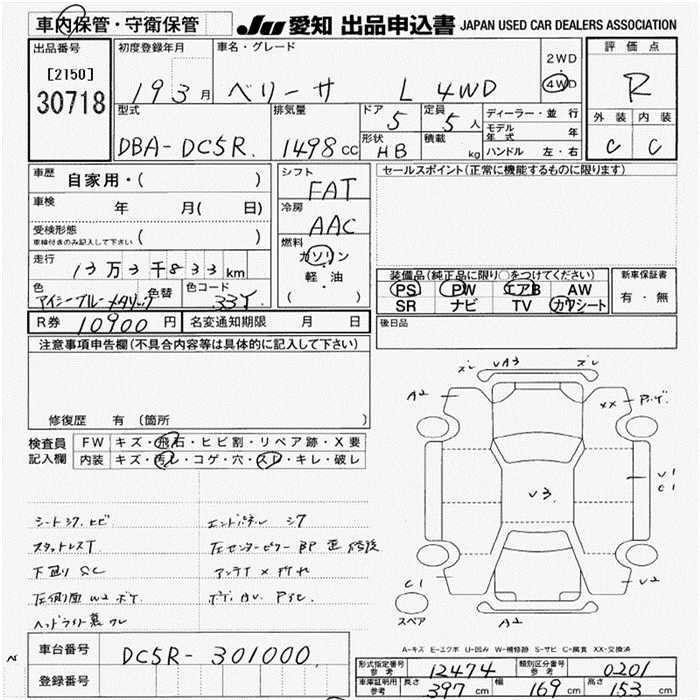 車内保管・守衛保管 JU 愛知 出品申込書 JAPAN USED CAR DEALERS ASSOCIATION
出品番号 初度登録年月 車名・グレード 評価点
[2150] 2WD
30718 19 3月 ベリーサ L 4WD ・4WD R
型式 排気量 ドア 定員 ディーラー・並行 外装 内装
DBA-DC5R 1498cc 5 5人 モデル年式 年 C C
形状 HB 積載 kg ハンドル 左・右
車歴 自家用・( ) シフト FAT セールスポイント(正常に機能するものに限ります)
車検 年 月( 日) 冷房 AAC
受検形態 車検付きのみ記入して下さい ( ) 燃料 ガソリン
走行 13万3千833km ・軽・油 ( )
装備品(純正品に限り○をつけてください) 新車保証書
色 アイシーブルーメタリック 色替 色コード 33Y PS PW エアB AW 有・無
SR ナビ TV カワシート
R券 10900円 名変通知期限 月 日 後日品
注意事項申告欄(不具合内容等は具体的に記入して下さい)
修復歴 有 (箇所 )
検査員 FW キズ・飛石・ヒビ割・リペア跡・X要
記入欄 内装 キズ・汚レ・コゲ・穴・スレ・キレ・破レ
ズレ VA3 ズレ
A2 XX
V3 V1
C1
C1 V2
スペア A2
シートシワ、ヒビ エンドパネル シワ
スタッドレスT 左センターピラー部 歪 修後
下廻り SC アンテナ×折れ
左側面 W2
ヘッドライト
A-キズ E-エクボ U-凹み W-補修跡 S-サビ C-腐食 XX-交換済
車台番号 DC5R-301000
登録番号
型式指定番号 参考 12474 類別区分番号 参考 0201
車庫証明用 参考 長さ 397cm 幅 169cm 高さ 153cm